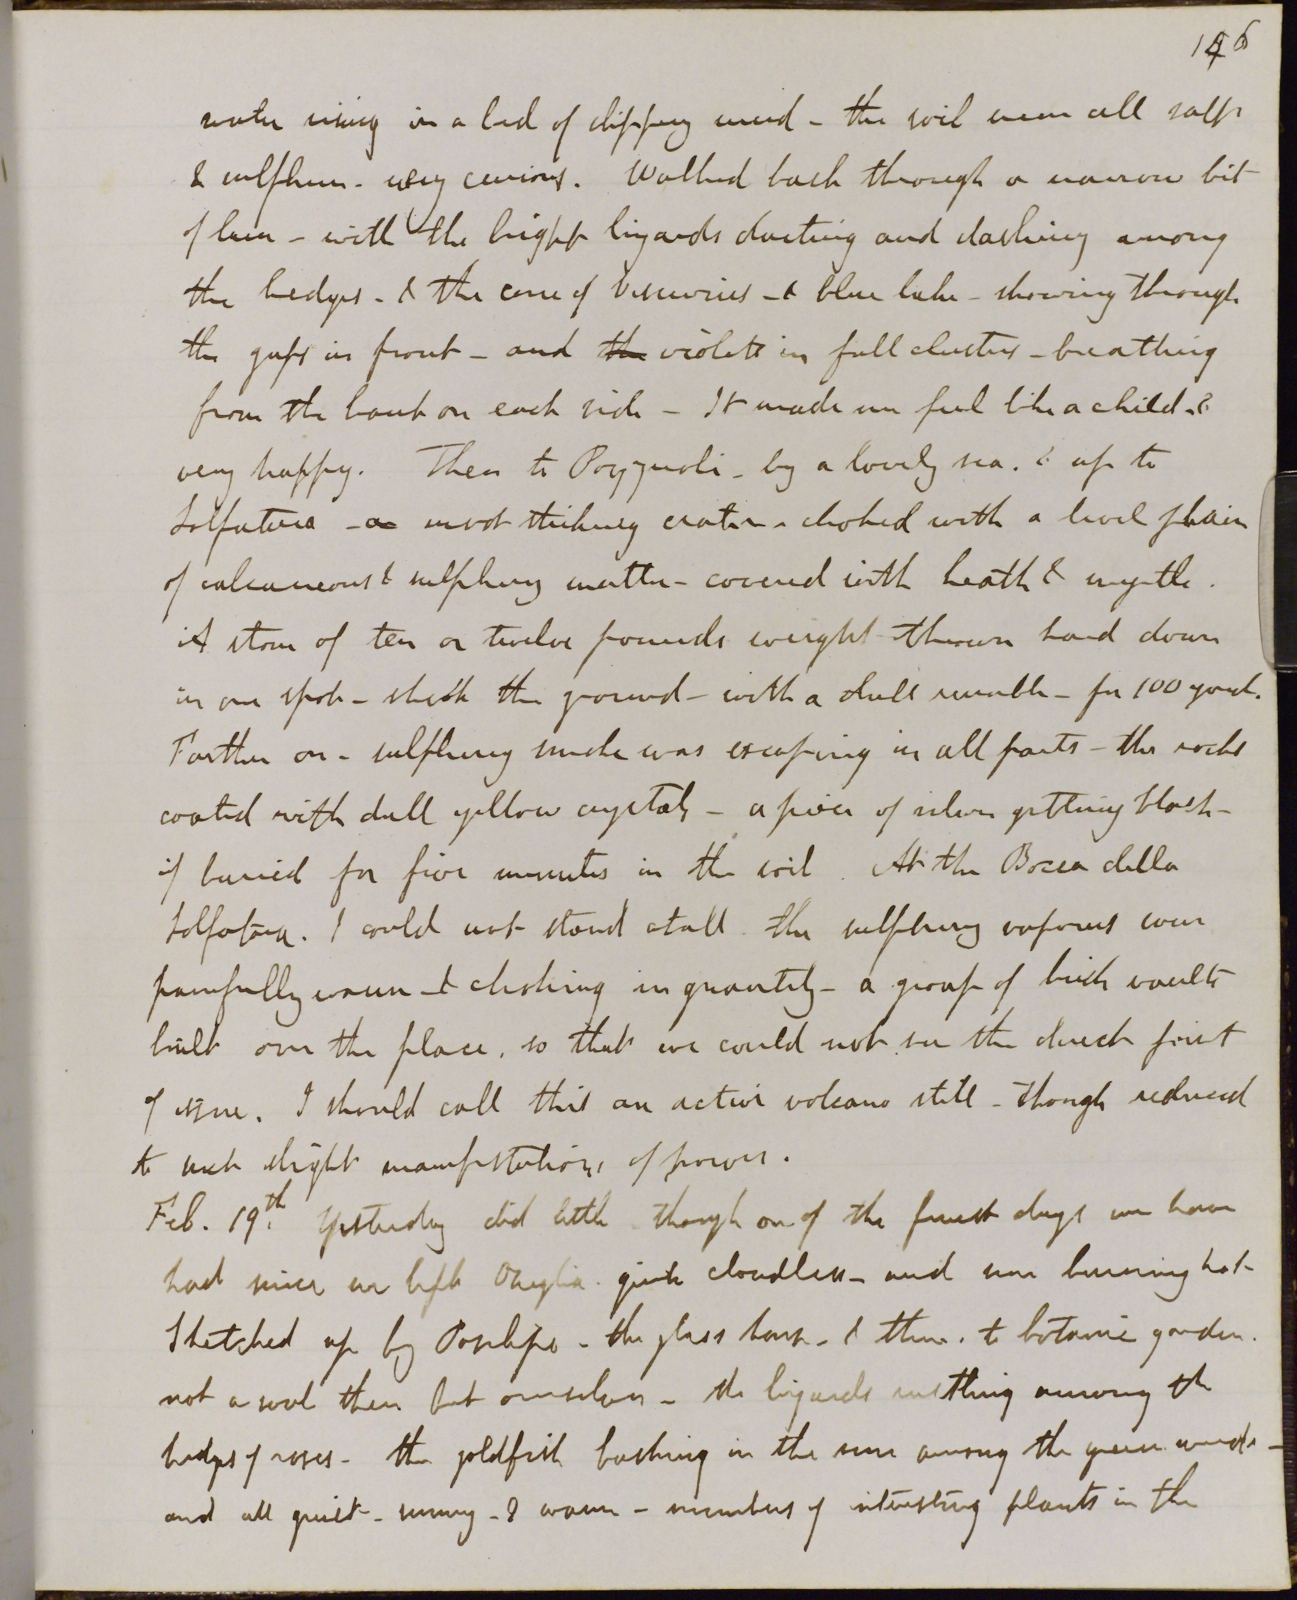 146
water rising in a bed of dipping mud - the soil near all salts
& sulphur - very curious. Walked back through a narrow bit
of lane - with the bright lizards darting and dashing among
the hedges - & the cone of Vesuvius - & blue lake - showing through
the gaps in front - and the violets in full clusters - breathing
from the bank on each side - It made me feel like a child - &
very happy. Then to Pozzuoli - by a lovely sea. & up to
Solfatara - a most striking crater - choked with a level plain
of calcareous & sulphury matter - covered with heath & myrtle.
A stone of ten or twelve pounds weight thrown hard down
in one spot - shook the ground - with a dull rumble - for 100 yards.
Farther on - sulphury smoke was escaping in all parts - the rocks
coated with dull yellow crystals - a piece of silver getting black -
if buried for five minutes in the soil. At the Bocca della
Solfatara. I could not stand at all the sulphury vapours were
painfully warm - & choking in quantity - a group of brick vaults
built over the place, so that we could not see the direct point
of issue. I should call this an active volcano still - though reduced
to such slight manifestations of power.
Feb. 19th. Yesterday did little though one of the finest days we have
had since we left Oneglia. quite cloudless - and sun burning hot -
Sketched up by Posilipo - the glass house - & then. to botanic garden.
not a soul there but ourselves - the lizards rustling among the
hedges of roses - the goldfish basking in the sun among the green weeds -
and all quiet - sunny - & warm - numbers of interesting plants in the